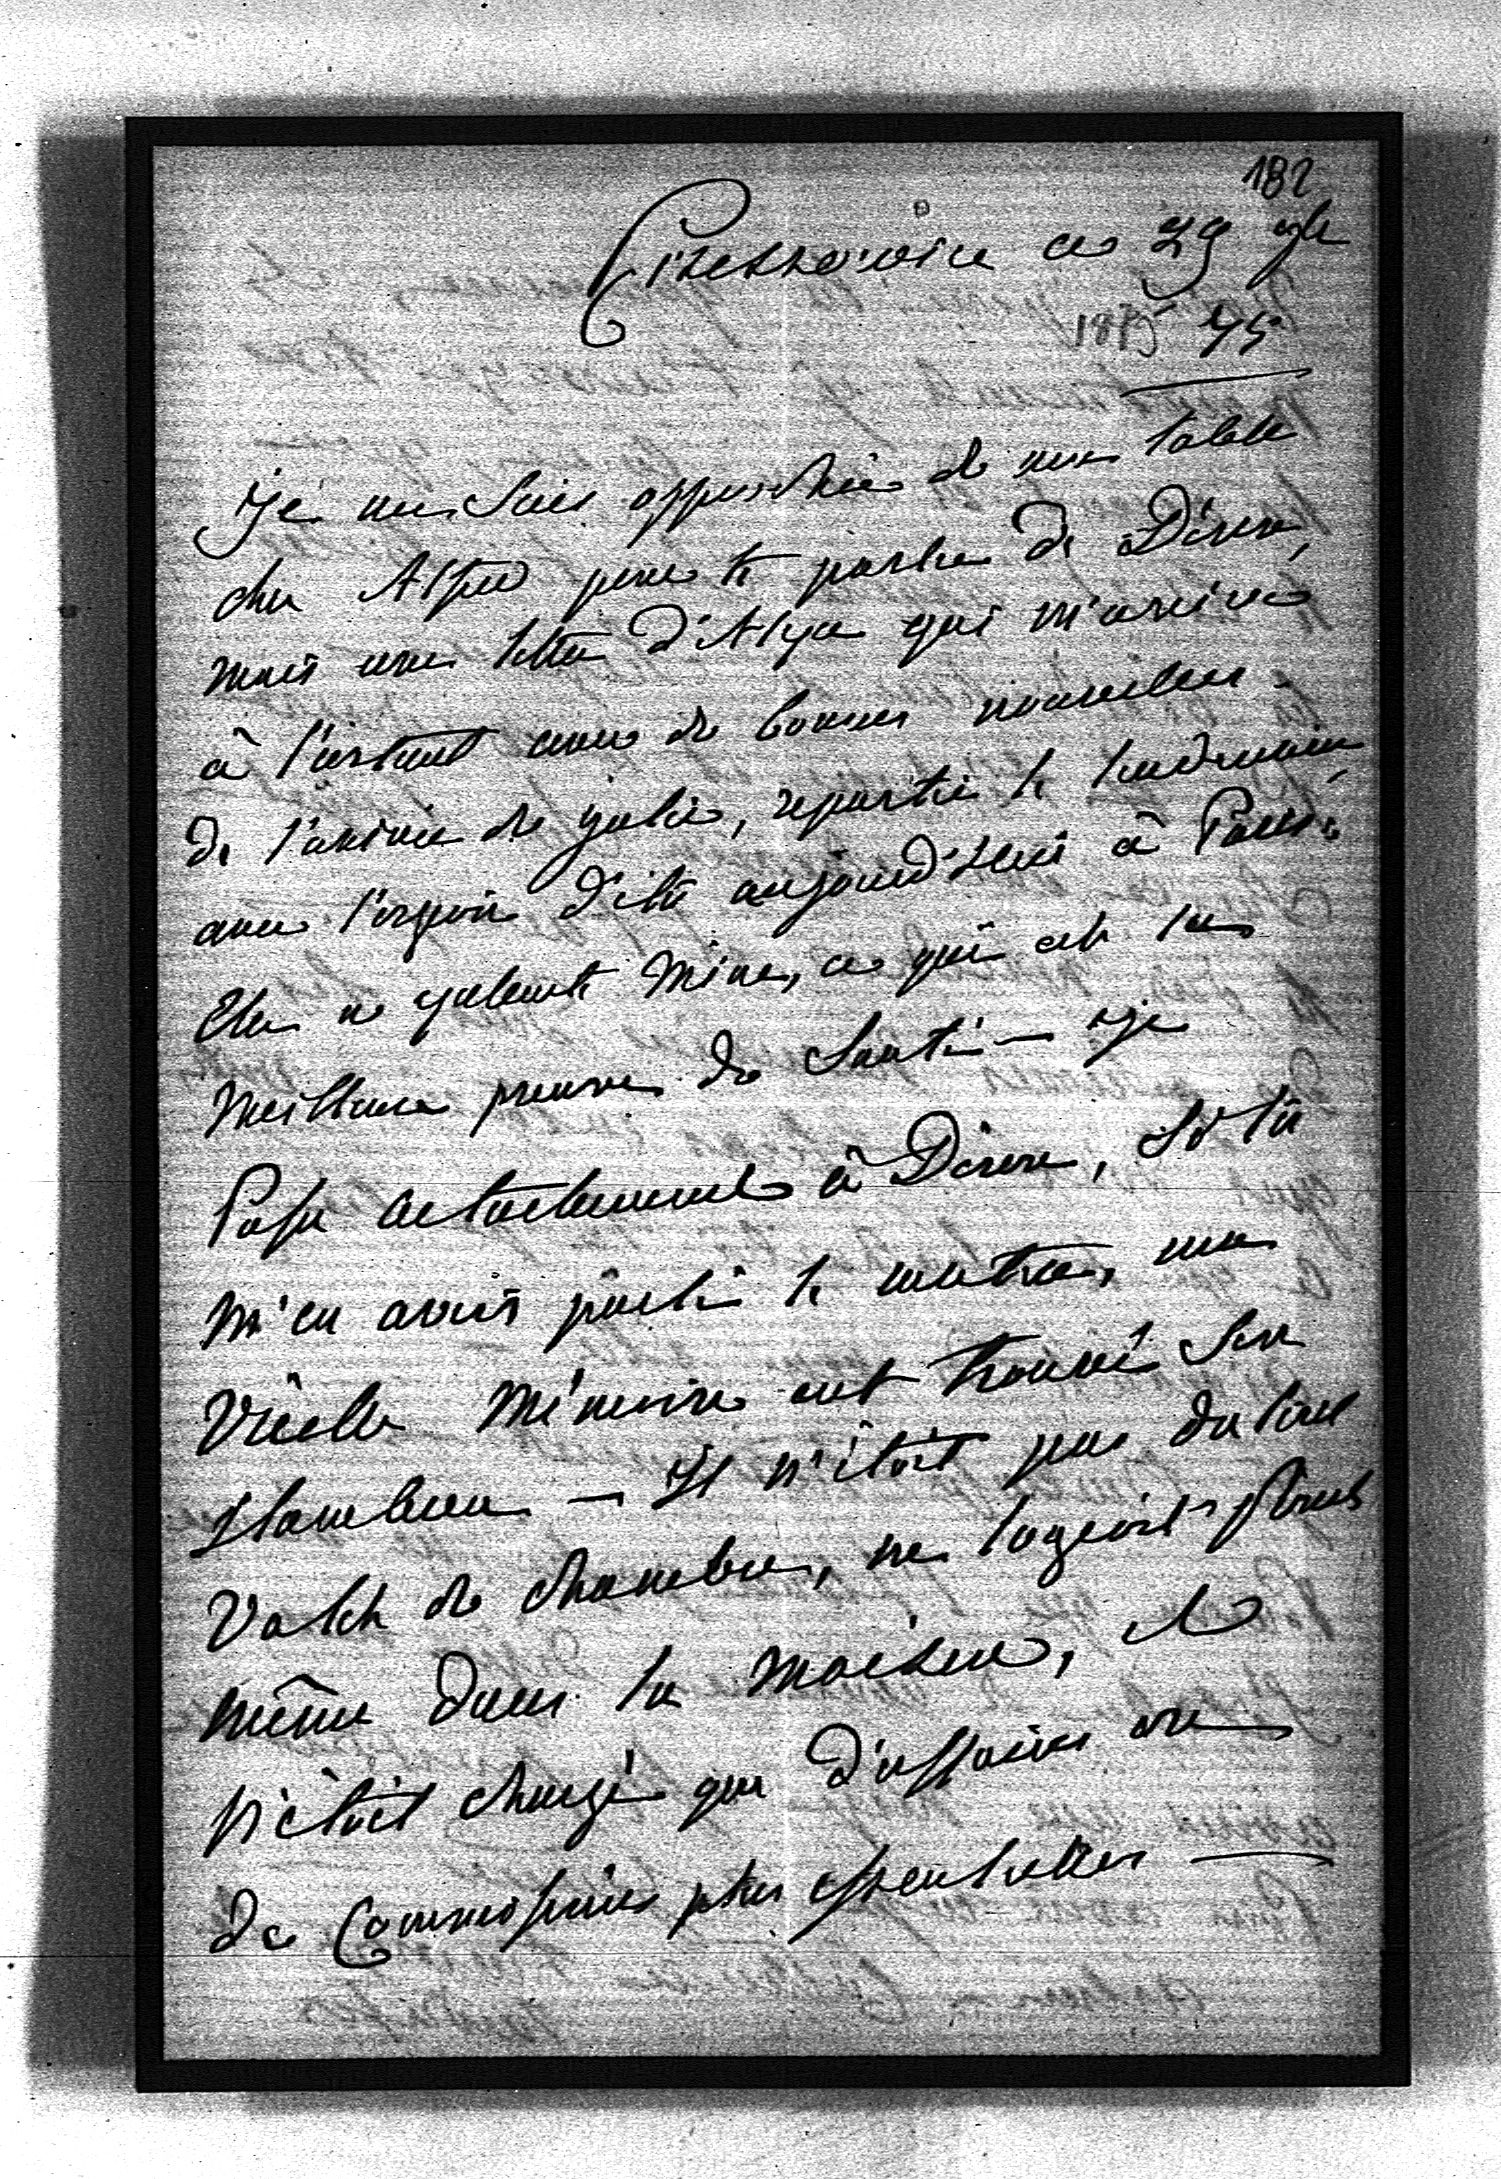 182
Pressoire ce 29 9bre
45
Je me suis approchée de ma table
cher Alfred pour te parler de Dison,
mais une lettre d'Alya qui m'arrive
à l'instant avec de bonnes nouvelles
de l'arrivée de Julie, repartie le lendemain
avec l'espoir d'être aujourd'hui à Paris.
Elle a galante mine, ce qui est la
meilleure preuve de santé — Je
passe actuellement à Dison, si tu
m'en avais parlé le ma
vieille mémoire eut trouvé son
flambeau — Il n'étoit pas du tout
valet de chambre, ne logeoit pas
même dans la maison, et
n'étoit chargé que d'affaires ou
de commissions plus essentielles —